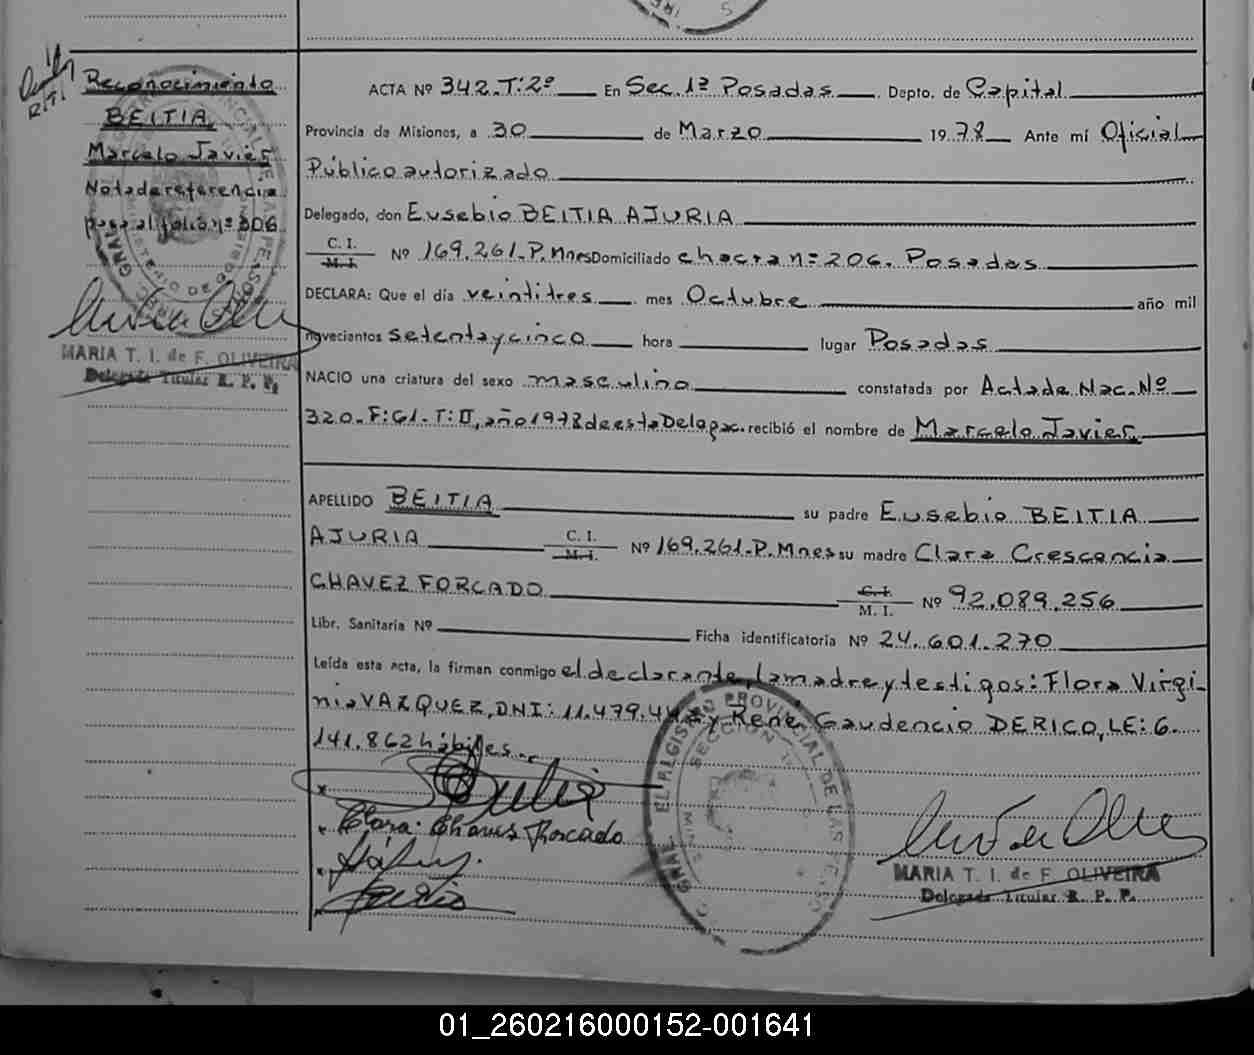 Reconocimiento
BEITIA
Marcelo Javier
Nota de referencia
pasa al folio nº 306
MARIA T. I. de F. OLIVEIRA
Delegada Titular R. P. P.
ACTA Nº 342. T: 2º En Sec. 1ª Posadas. Depto. de Capital
Provincia de Misiones, a 30 de Marzo 1978 Ante mí Oficial
Público autorizado
Delegado, don Eusebio BEITIA AJURIA
C. I.
M. I. Nº 169.261. P. Mnes Domiciliado chacra nº 206. Posadas
DECLARA: Que el día veintitres mes Octubre año mil
novecientos setenta y cinco hora lugar Posadas
NACIO una criatura del sexo masculino constatada por Acta de Nac. Nº
320. F: 61. T: II, año 1978 de esta Delegac. recibió el nombre de Marcelo Javier
APELLIDO BEITIA su padre Eusebio BEITIA
AJURIA C. I. M. I. Nº 169.261. P. Mnes su madre Clara Crescencia
CHAVEZ FORCADO C. I. M. I. Nº 92.089.256
Libr. Sanitaria Nº Ficha identificatoria Nº 24.601.270
Leída esta acta, la firman conmigo el declarante, la madre y testigos: Flora Virgi-
nia VAZQUEZ, DNI: 11.479. y Rene Gaudencio DERICO, LE: 6.
141.862 hábiles.
Clara Chaves Forcado
GRAL. EL REGISTRO PROVINCIAL DE LAS PERSO
SECCION
MARIA T. I. de F. OLIVEIRA
Delegada Titular R. P. P.
01_260216000152-001641